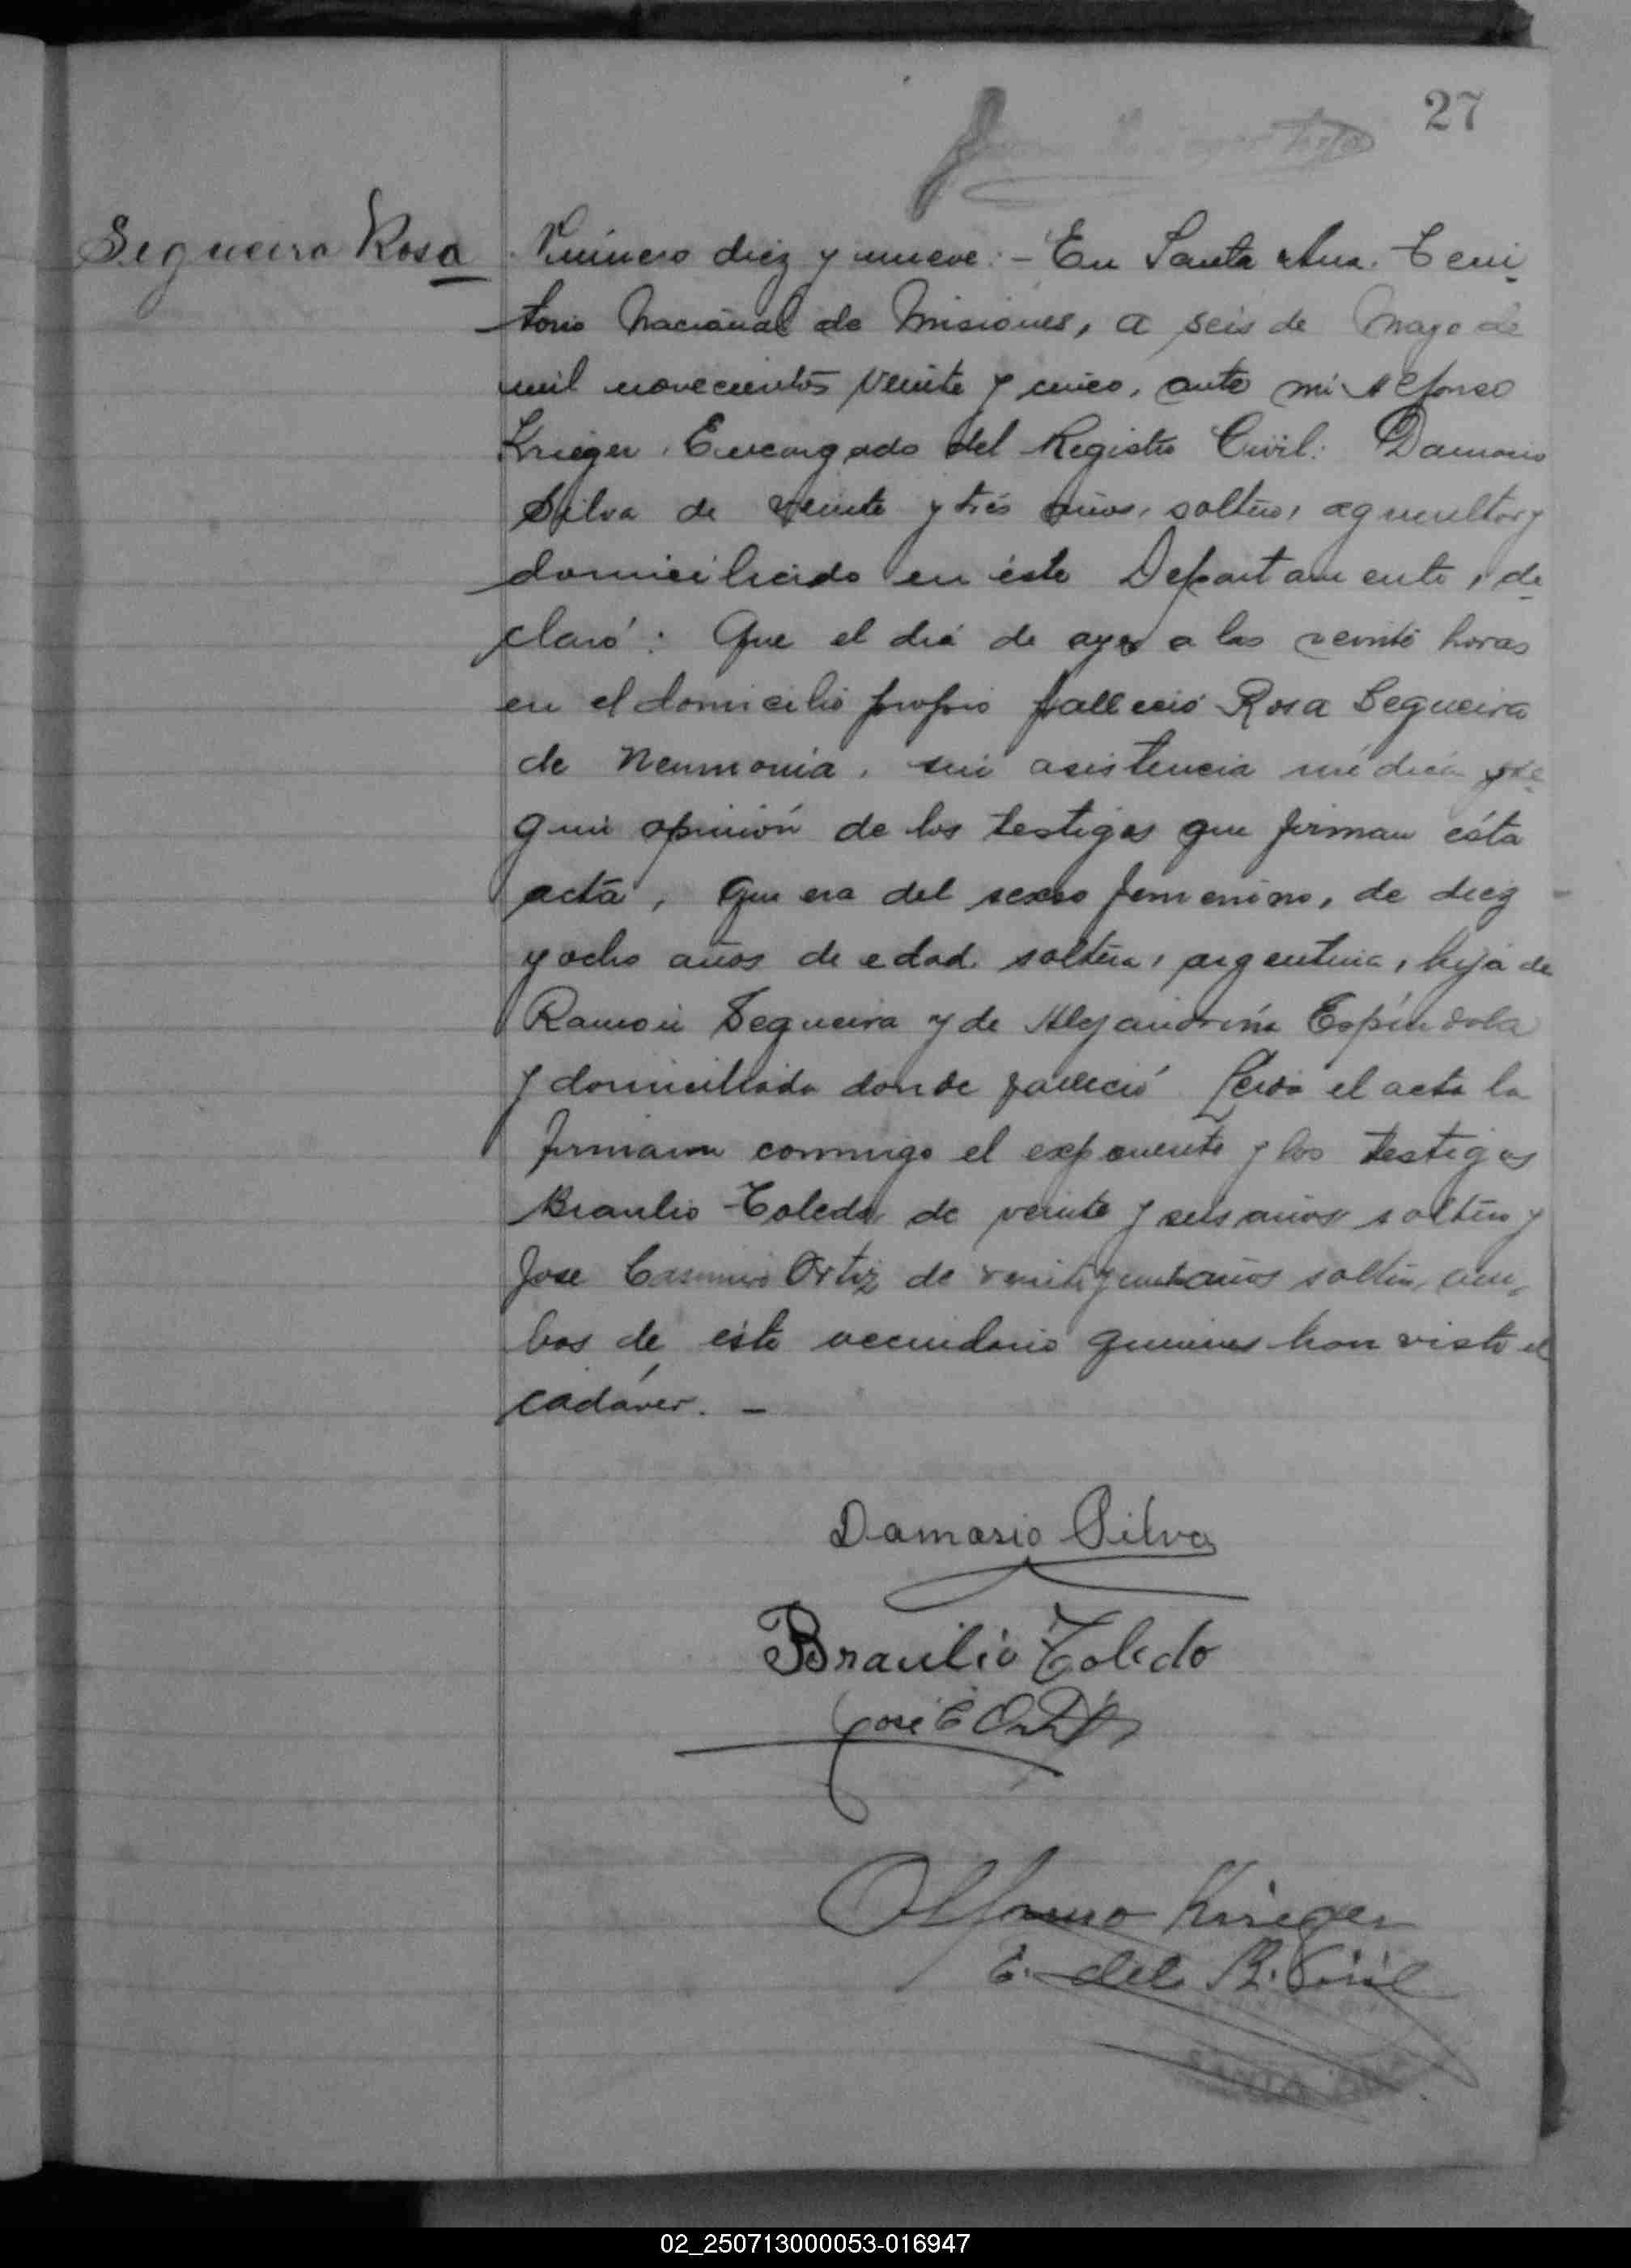 27
Segueira Rosa
Número diez y nueve:- En Santa Ana. Terri-
torio Nacional de Misiones, a seis de Mayo de
mil novecientos veinte y cinco, ante mi Alfonso
Krieger, Encargado del Registro Civil: Damasio
Silva de veinte y tres años, soltero, agricultor y
domiciliado en éste Departamento, de-
claró: Que el dia de ayer a las veinte horas
en el domicilio propio falleció Rosa Segueira
de Neumonia, sin asistencia médica se-
gun opinión de los testigos que firman ésta
acta, Que era del sexso femenino, de diez
y ocho años de edad, soltera, argentina, hija de
Ramon Segueira y de Alejandrina Espíndola
y domiciliada donde falleció. Leida el acta la
firmaron conmigo el exponente y los testigos
Braulio Toledo de veinte y seis años soltero y
Jose Casimiro Ortiz de años soltero, am-
bos de éste vecindario quienes han visto el
cadáver. -
Damasio Silva
Braulio Toledo
José C Ortiz
Alfonso Krieger
E. del R. Civil
SANTA ANA
02_250713000053-016947